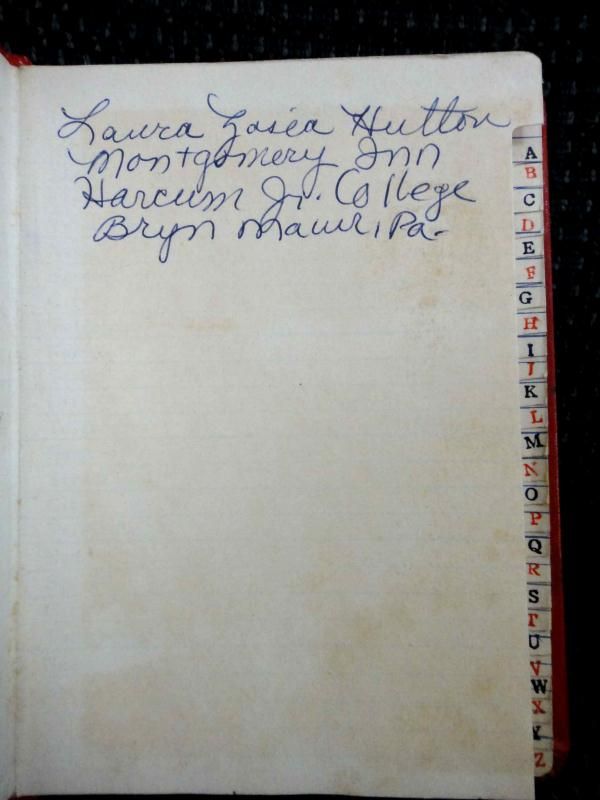 Laura Hutton
Montgomery Inn
Harcum Jr. College
Bryn Mawr, Pa.
A
B
C
D
E
F
G
H
I
J
K
L
M
N
O
P
Q
R
S
T
U
V
W
X
Y
Z